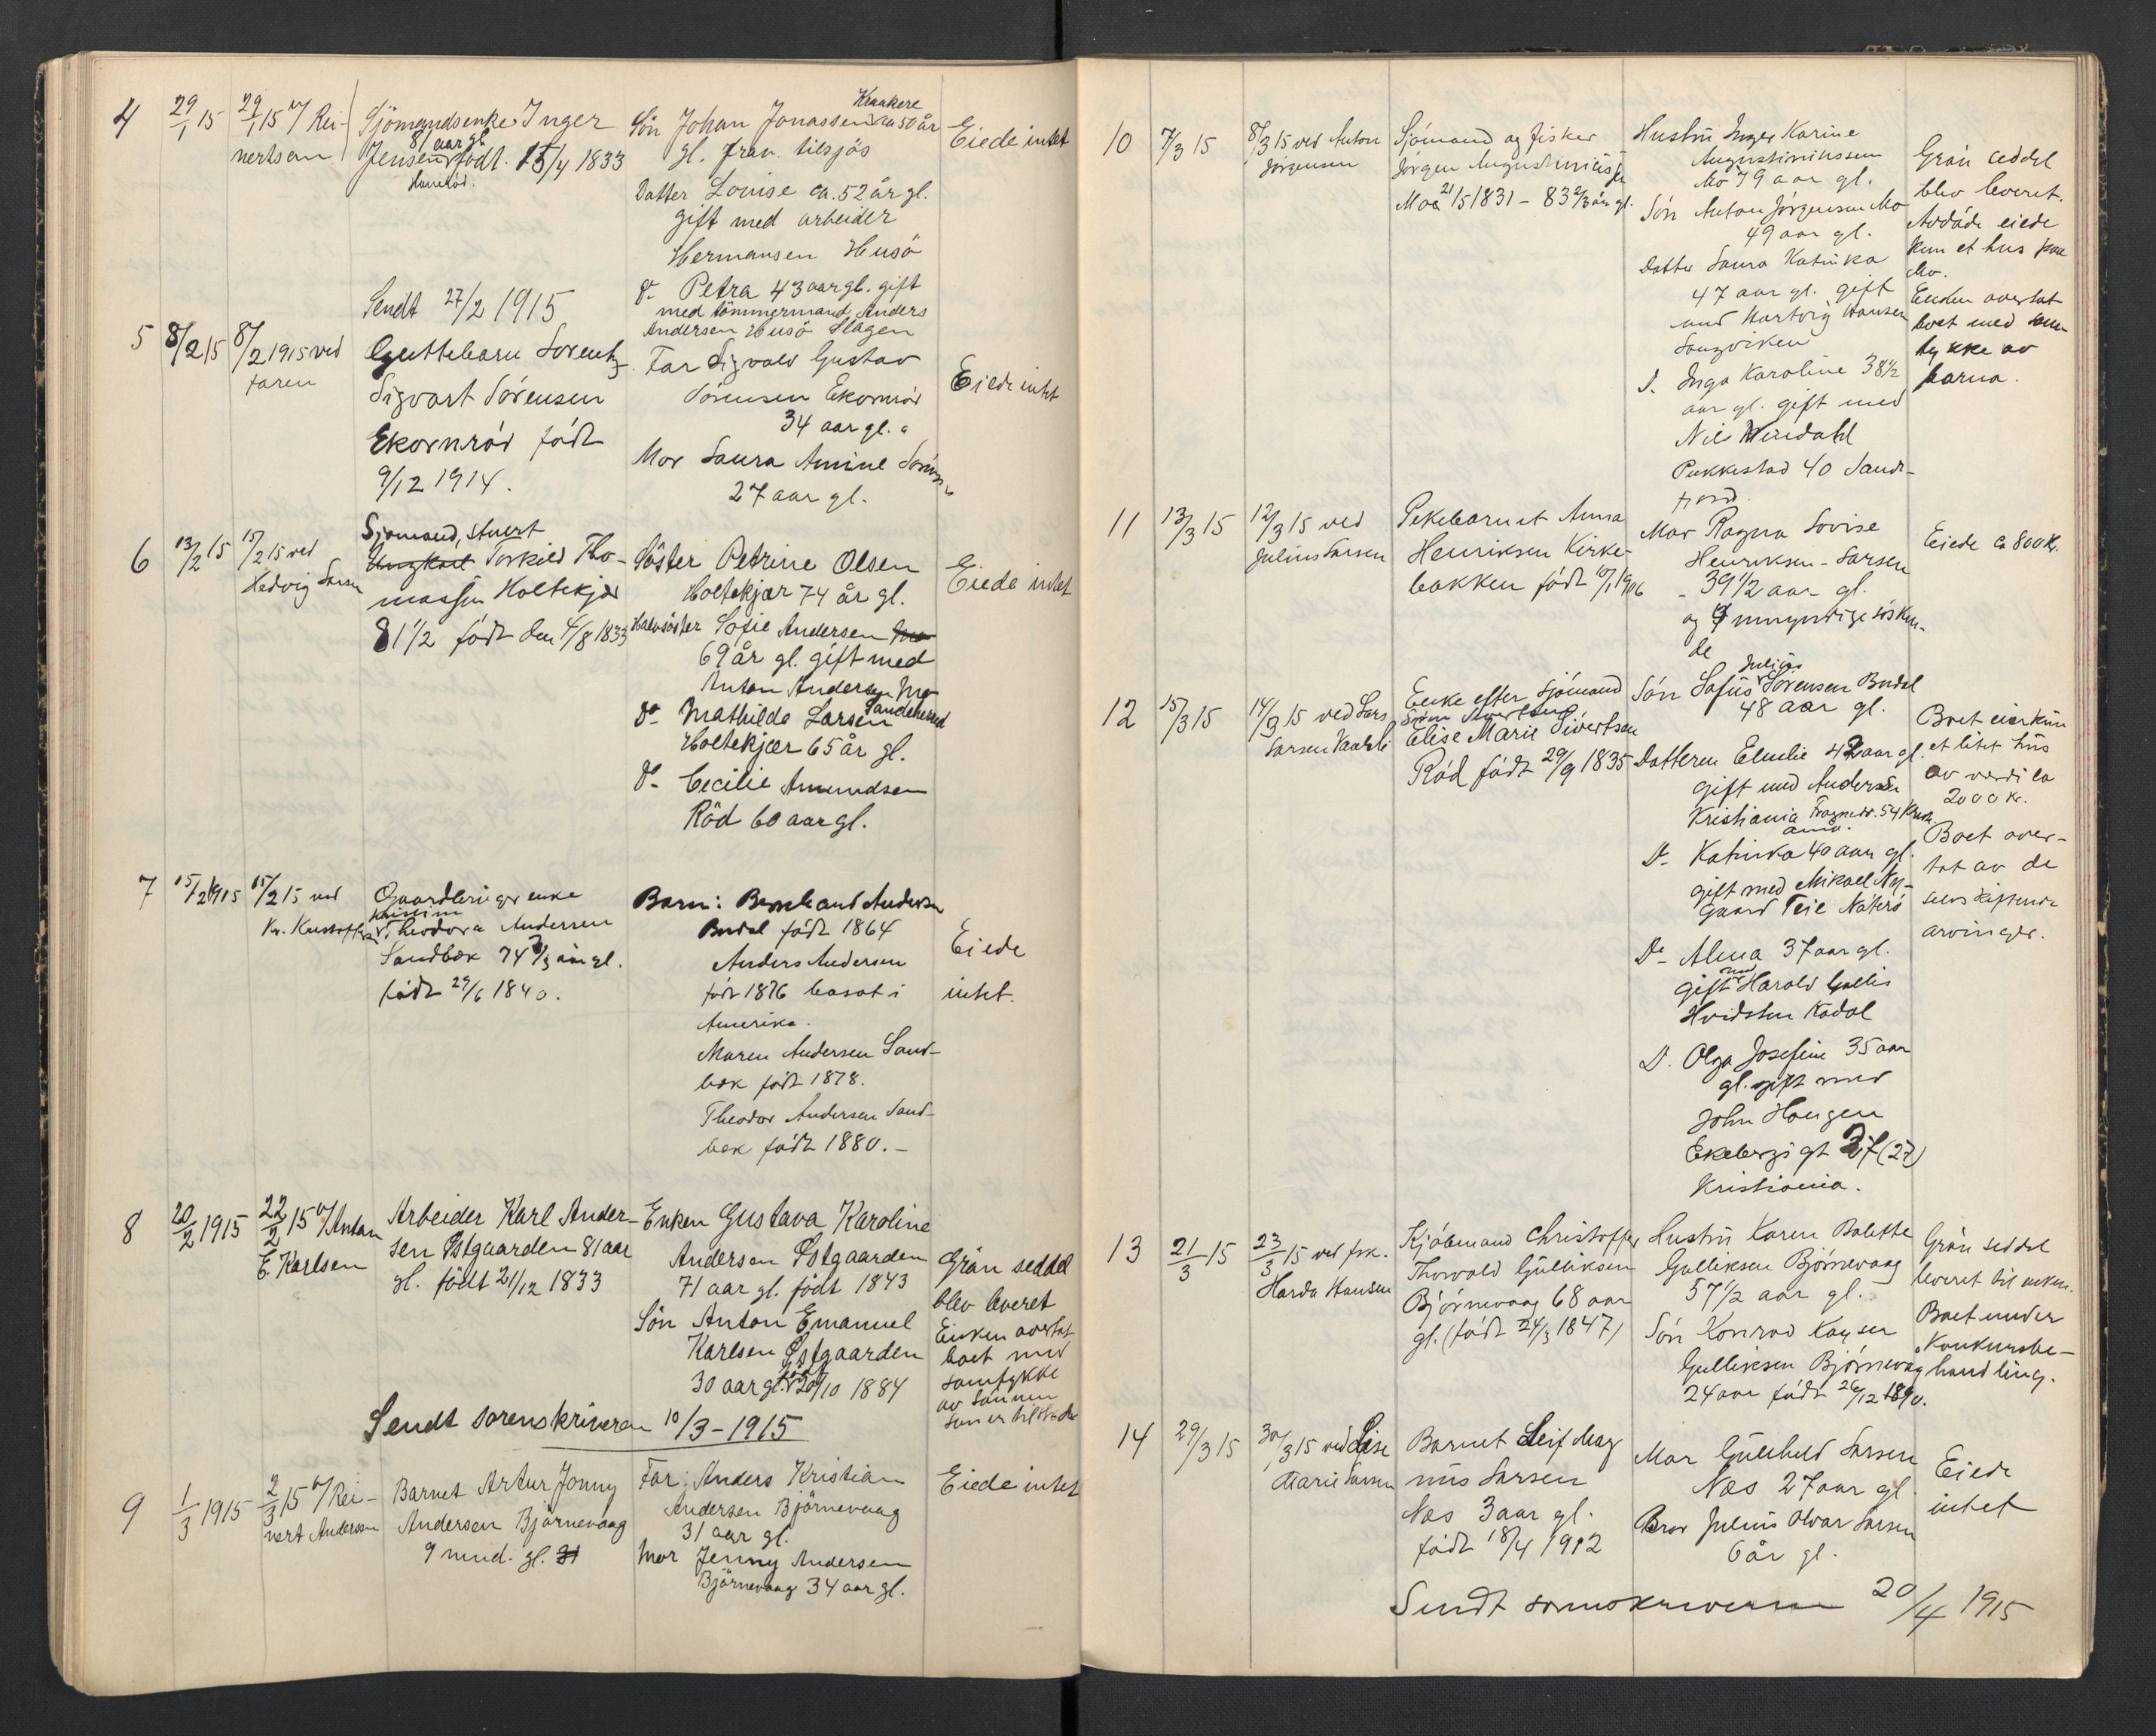 4
29/1 15
29/1 15 v/ Rei-
nertsen
Sjömandsenke Inger
81 aar gl.
Jensen född. 15/4 1833
Sön Johan Jonassen ca 50 år
gl. frav. tilsjös
Datter Louise ca. 52 år gl.
gift med arbeider
Hermansen Husö
do Petra 43 aar gl. gift
med tömmermand Anders
Andersen Husö Slagen
Eiede intet
Sendt 27/2 1915
5
8/2 15
8/2 1915 ved
faren
Guttebarn Lorentz
Sigvart Sörensen
Ekornröd född
9/12 1914.
Far Sigvald Gustav
Sörensen Ekornröd
34 aar gl.
Mor Laura Amine Sörensen
27 aar gl.
Eiede intet
6
13/2 15
15/2 15 ved
Hedvig Larsen
Sjömand,
Ungkarl Torkild Tho-
massen Holtekjær
81 1/2 född den 4/8 1833
Söster Petrine Olsen
Holtekjær 74 år gl.
Halvsöster Sofie Andersen
69 år gl. gift med
Anton Andersen Mo
Sandeherred
do Mathilde Larsen
Holtekjær 65 år gl.
do Cecilie Amundsen
Röd 60 aar gl.
Eiede intet
7
15/2 1915
15/2 15 ved
Kr. Kristoffersen
Gaardbruger enke
Theodora Andersen
Sandbæk 74 2/3 aar gl.
född 29/6 1840.
Barn: Bernhard Andersen
Budal född 1864
Anders Andersen
född 1876 bosat i
Amerika.
Maren Andersen Sand-
bæk född 1878.
Theodor Andersen Sand-
bæk född 1880. -
Eiede
intet.
8
20/2 1915
22/2 15 v/ Anton
E. Karlsen
Arbeider Karl Ander-
sen Östgaarden 81 aar
gl. född 21/12 1833
Enken Gustava Karoline
Andersen Östgaarden
71 aar gl. född 1843
Sön Anton Emanuel
Karlsen Östgaarden
30 aar gl. född 20/10 1884
Grön seddel
blev leveret
Enken overtat
boet med
samtykke
av sönnen
som er tilstede
Sendt sorenskriveren 10/3 - 1915
9
1/3 1915
2/3 15 v/ Rei-
nert Andersen
Barnet Artur Jonny
Andersen Björnevaag
9 mnd. gl.
Far: Anders Kristian
Andersen Björnevaag
31 aar gl.
Mor Jenny Andersen
Björnevaag 34 aar gl.
Eiede intet
10
7/3 15
8/3 15 ved Anton
Jörgensen
Sjömand og fisker
Jörgen Augustiniussen
Moa 21/5 1831 - 83 2/3 år gl.
Hustru Inger Karine
Augustiniussen
Mo 79 aar gl.
Sön Anton Jörgensen Mo
49 aar gl.
Datter Laura Katinka
47 aar gl. gift
med Hartvig Hansen
Sougviken
d. Inga Karoline 38 1/2
aar gl. gift med
Nils
Pukkestad 40 Sande-
fjord.
Grön ceddel
blev leveret.
Avdöde eiede
kun et hus paa
Mo.
Enken overtat
boet med sam-
tykke av
barna.
11
13/3 15
12/3 15 ved
Julius Larsen
Pikebarnet Anna
Henriksen Kirke-
bakken född 10/1 1906
Mor Ragna Lovise
Henriksen - Larsen
- 39 1/2 aar gl.
og 4 umyndige sösken-
de
Eiede ca 800 kr.
12
15/3 15
14/3 15 ved Lars
Larsen
Enke efter Sjömand
Sören Sivertsen
Elise Marie Sivertsen
Röd född 29/9 1835
Sön Sofus Julius Sörensen Budal
48 aar gl.
Datteren Emilie 42 aar gl.
gift med Andersen
Kristiania Frognerv. 54
do Katinka 40 aar gl.
gift med Mikael Ny-
gaard Teie Nöterö
do Alma 37 aar gl.
gift med Harald Gallis
Hvidsten Kodal
D. Olga Josefine 35 aar
gl. gift med
John Haugen
Ekebergs gt 27 (27)
Kristiania.
Boet eier kun
et litet hus
av verdi ca
2000 kr.
Boet over-
tat av de
selvskiftende
arvinger.
13
21/3 15
23/3 15 ved frk.
Harda Hansen
Kjöbmand Christoffer
Thorvald Gulliksen
Björnevaag 68 aar
gl. (född 24/3 1847)
Hustru Karen Bolette
Gulliksen Björnevaag
57 1/2 aar gl.
Sön Konrad Kayser
Gulliksen Björnevaag
24 aar född 26/12 1890.
Grön seddel
leveret til enken.
Boet under
konkursbe-
handling.
14
29/3 15
30/3 15 ved Lise
Marie Larsen
Barnet Leif Mag
nus Larsen
Næs 3 aar gl.
född 18/4 1912
Mor Gunhild Larsen
Næs 27 aar gl
Bror Julius Olvar Larsen
6 år gl.
Eiede
intet
Sendt sorenskriveren 20/4 1915